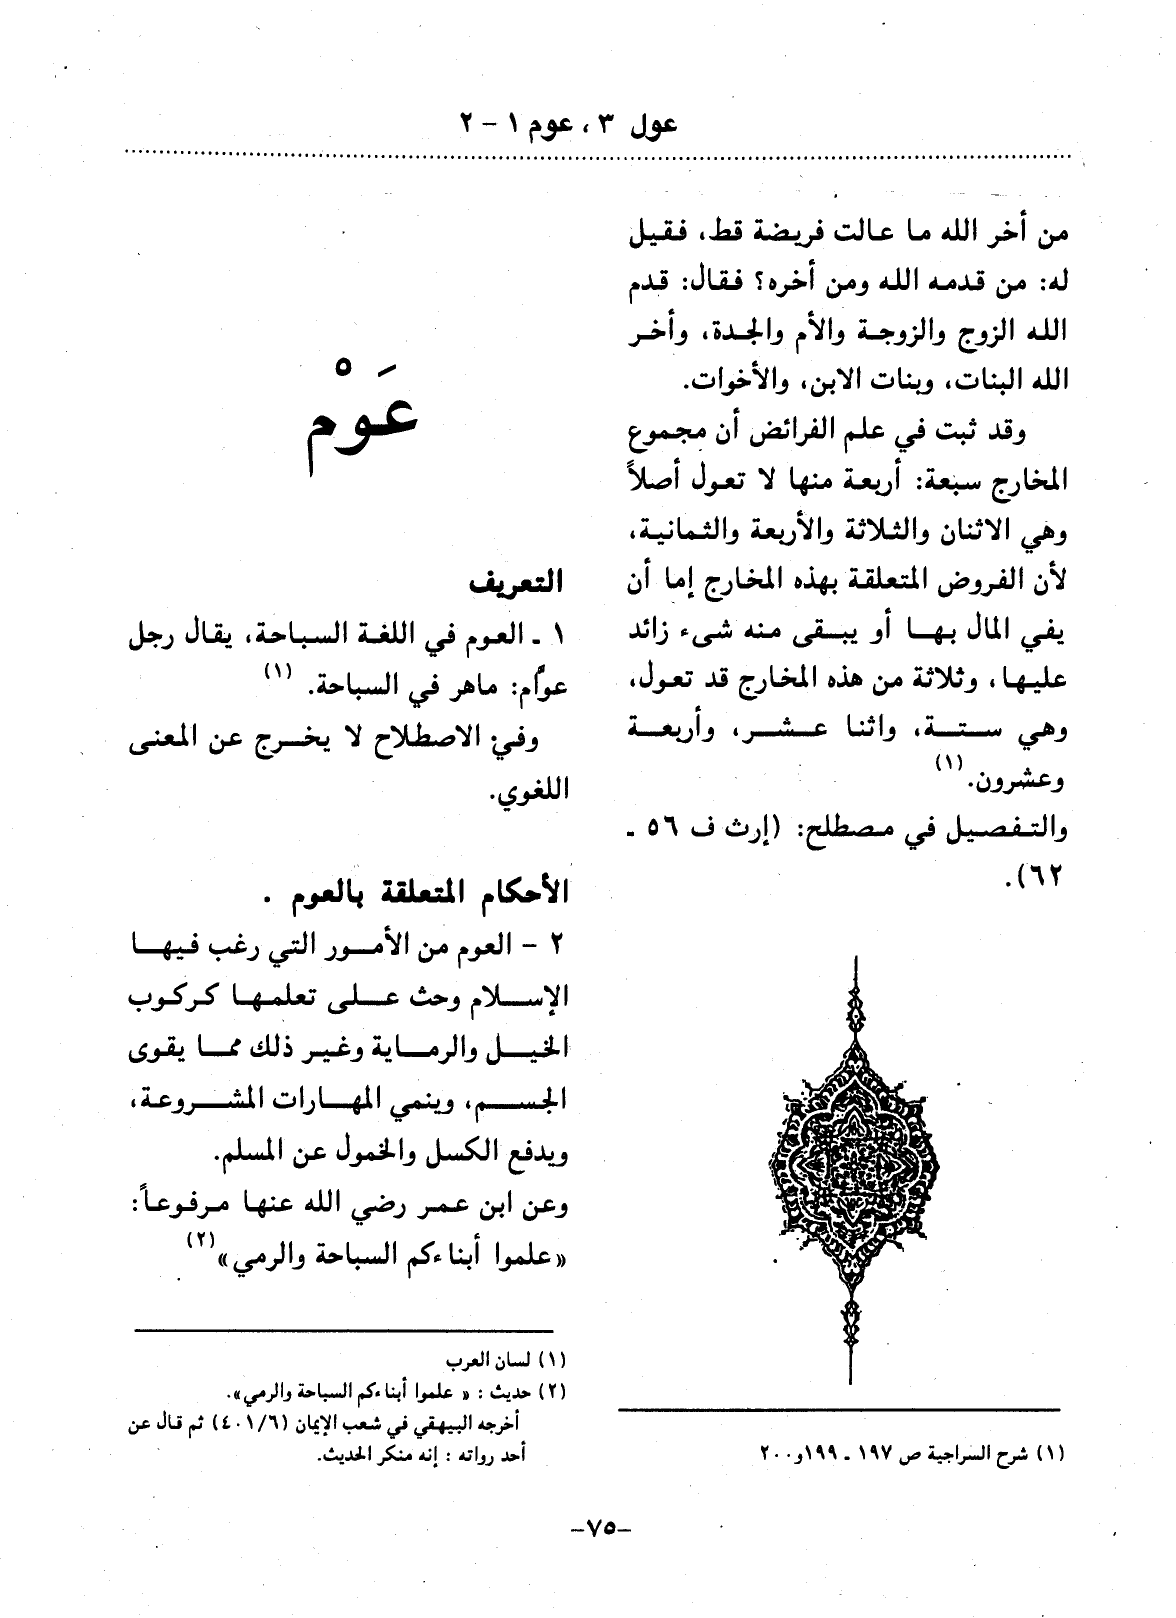 عول ٣ ، عوم ١ - ٢
من أخر الله ما عالت فريضة قط، فقيل
له: من قدمه الله ومن أخره؟ فقال: قدم
الله الزوج والزوجة والأم والجدة، وأخر
الله البنات، وبنات الابن، والأخوات.
وقد ثبت في علم الفرائض أن مجموع
المخارج سبعة: أربعة منها لا تعول أصلاً
وهي الاثنان والثلاثة والأربعة والثمانية،
لأن الفروض المتعلقة بهذه المخارج إما أن
يفي المال بها أو يبقى منه شىء زائد
عليها، وثلاثة من هذه المخارج قد تعول،
وهي ستة، واثنا عشر، وأربعة
وعشرون. (١)
والتفصيل في مصطلح: (إرث ف ٥٦ ـ
٦٢).
(١) شرح السراجية ص ١٩٧ ـ ١٩٩ و٢٠٠
عَوْم
التعريف
١ ـ العوم في اللغة السباحة، يقال رجل
عوام: ماهر في السباحة. (١)
وفي الاصطلاح لا يخرج عن المعنى
اللغوي.
الأحكام المتعلقة بالعوم .
٢ - العوم من الأمور التي رغب فيها
الإسلام وحث على تعلمها كركوب
الخيل والرماية وغير ذلك مما يقوى
الجسم، وينمي المهارات المشروعة،
ويدفع الكسل والخمول عن المسلم.
وعن ابن عمر رضي الله عنها مرفوعاً:
«علموا أبناءكم السباحة والرمي» (٢)
(١) لسان العرب
(٢) حديث : « علموا أبناءكم السباحة والرمي».
أخرجه البيهقي في شعب الإيمان (٤٠١/٦) ثم قال عن
أحد رواته : إنه منكر الحديث.
-٧٥-